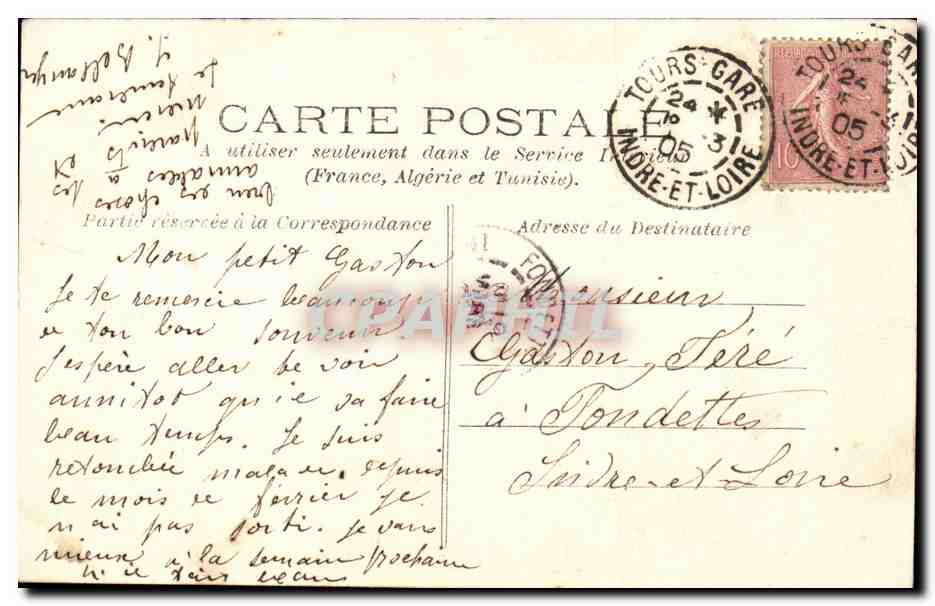 CARTE POSTALE
A utiliser seulement dans le Service Intérieur
(France, Algérie et Tunisie).
Partie réservée à la Correspondance
Adresse du Destinataire
TOURS-GARE
24
31
05
INDRE-ET-LOIRE
TOURS-GARE
24
31
05
INDRE-ET-LOIRE
10
FONDETTES
CPARHIL
Mon petit Gaston
Je te remercie beaucoup
e ton bon souvenir
J'espère aller te voir
aussitot qu'ie va faire
beau temps. Je suis
retombée malade depuis
le mois de février je
n'ai pas sorti. je vais
mieux à la semain prochaine
si ie fais beau
bien des choses
aimables à tes
parents et
merci
Monsieur
Gaston Féré
à Fondettes
Indre-et-Loire